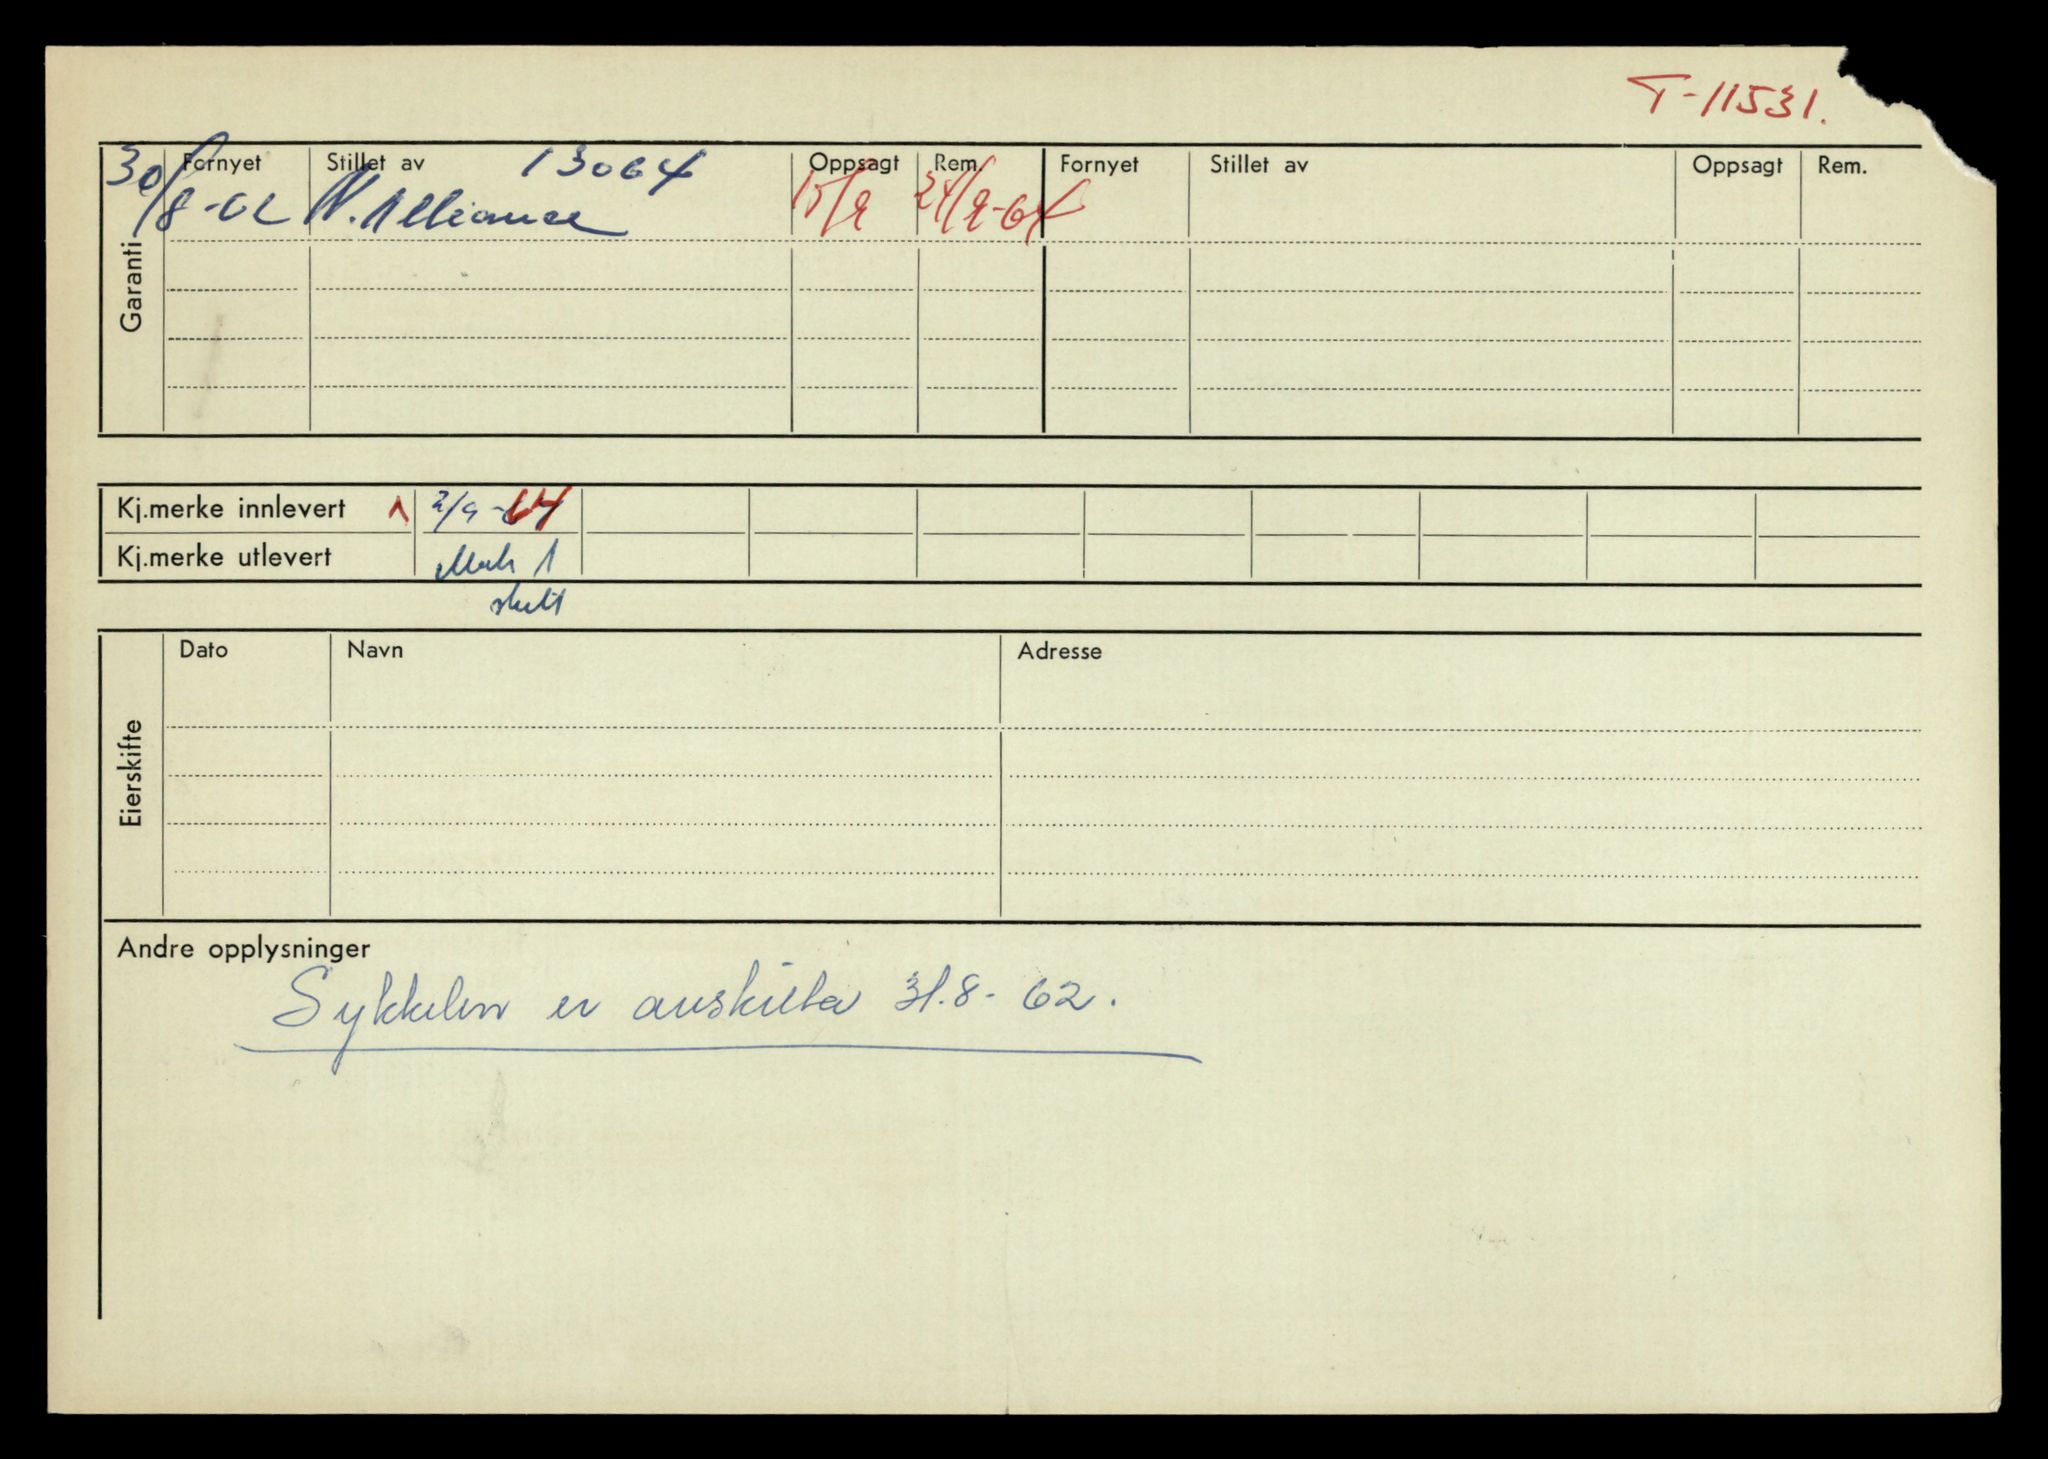 T-11531.
Fornyet Stillet av 13064 Oppsagt Rem. Fornyet Stillet av Oppsagt Rem.
30/8-62 N. Alliance 15/9 24/9-64
Garanti
Kj.merke innlevert 1 2/9-64
Kj.merke utlevert 1
skilt
Dato Navn Adresse
Eierskifte
Andre opplysninger
Sykkelen er avskilta 31.8-62.